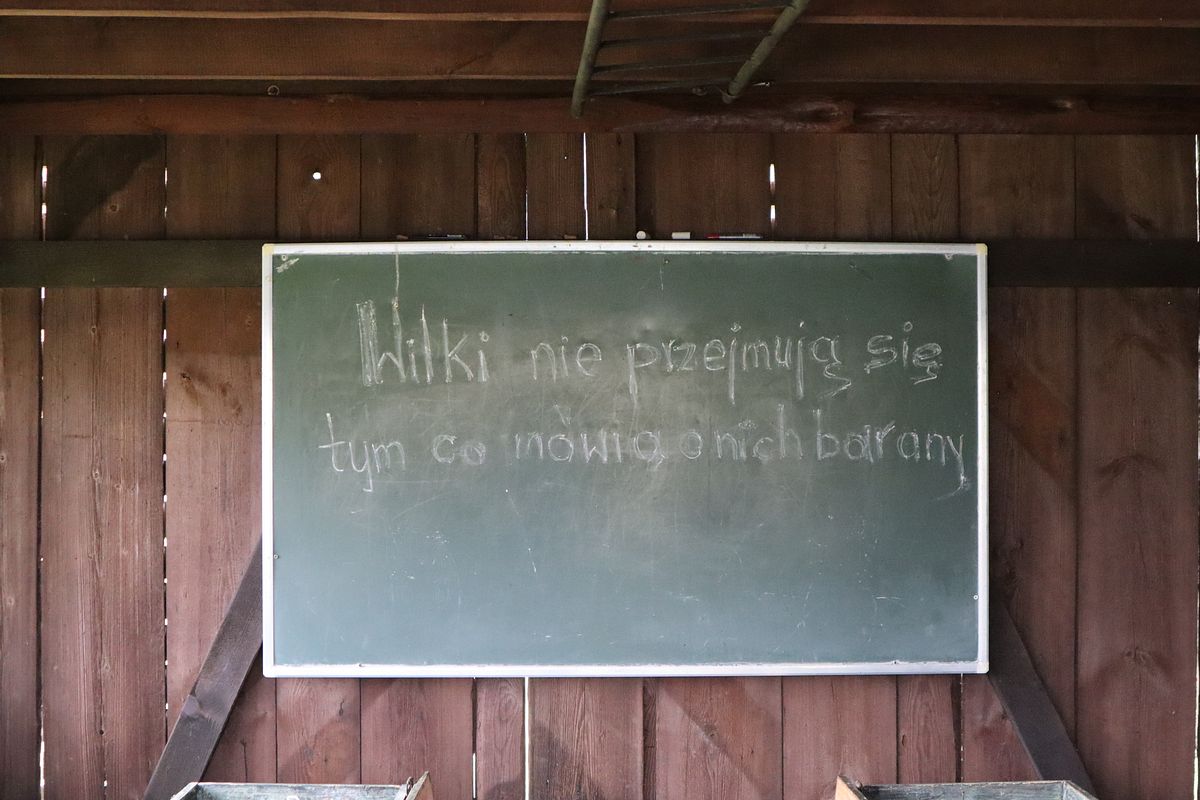 Wilki nie przejmują się
tym co mówią o nich barany